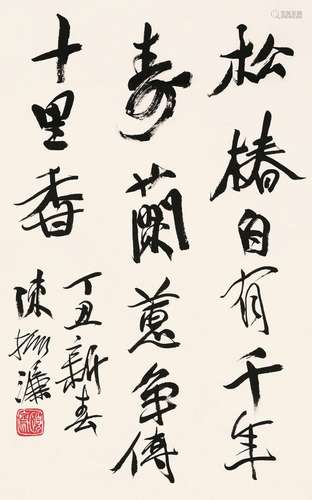 松椿自有千年
寿蘭蕙争傳
十里香
丁丑新春
陳振濂